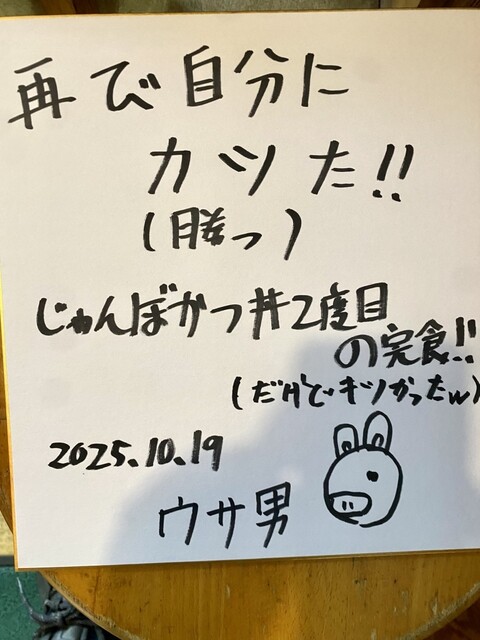 再び自分に
カツた!!
(勝っ)
じゃんぼかつ丼2度目
の完食!!
(だけど、キツかったw)
2025.10.19
ウサ男